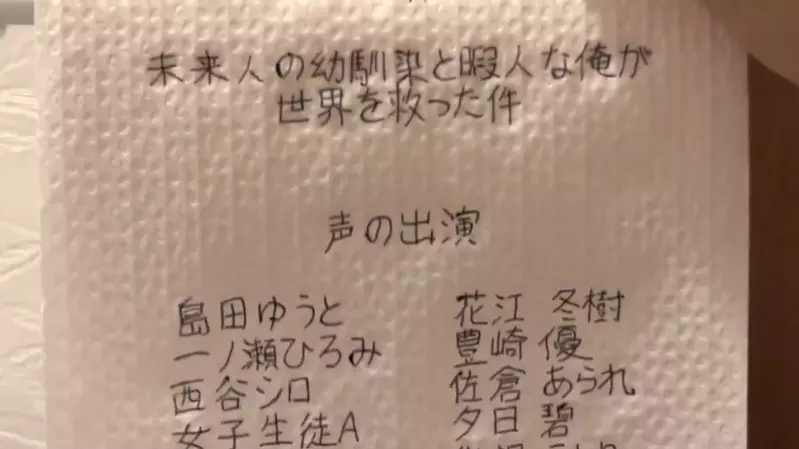 未来人の幼馴染と暇人な俺が
世界を救った件
声の出演
島田ゆうと 花江 冬樹
一ノ瀬ひろみ 豊崎 優
西谷シロ 佐倉 あられ
女子生徒A 夕日 碧